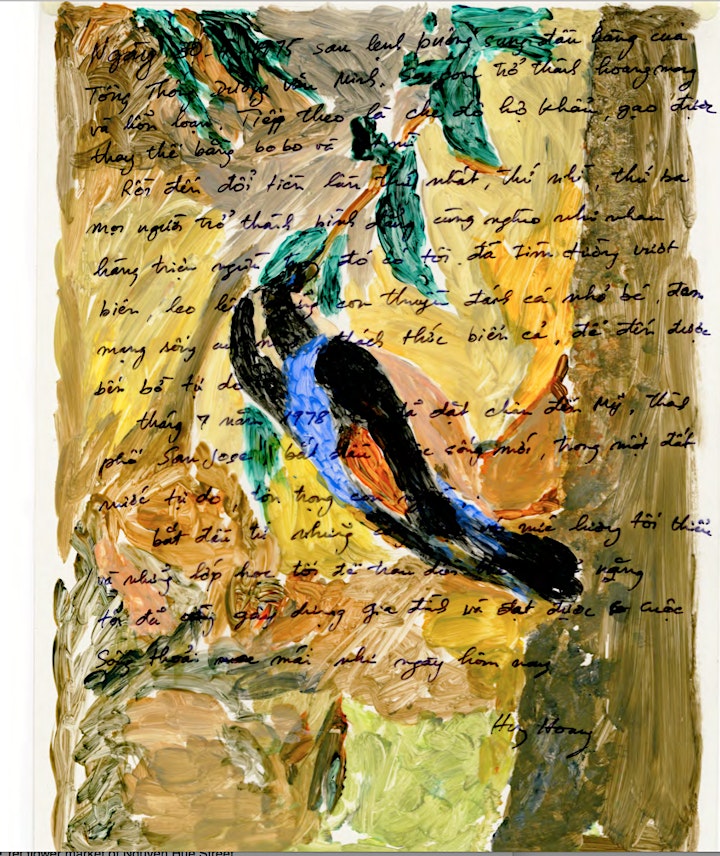 Ngày 30. 4. 1975 sau lệnh buông súng đầu hàng của
Tổng Thống Dương Văn Minh. trở thành hoang mang
và hỗn loạn. Tiếp theo là chế độ hộ khẩu, gạo được
thay thế bằng bobo và mì
Rồi đến đổi tiền lần thứ nhất, thứ nhì, thứ ba
mọi người trở thành bình đẳng cùng nghèo như nhau
hàng triệu người đó có tôi. đã tìm đường vượt
biên, leo lên con thuyền đánh cá nhỏ bé, đem
mạng sống thách thức biển cả, để đến được
bến bờ tự do
tháng 7 năm 1978 đã đặt chân đến Mỹ, Thành
phố San Jose bắt đầu sống mới, trong một đất
nước tự do, tôn trọng con
bắt đầu từ những mức lương tối thiểu
và những lớp học tối để trau
tôi đã gây dựng gia đình và đạt được cuộc
Sống thoải mái như ngày hôm nay
Huy Hoang
flower market of Nguyen Hue Street